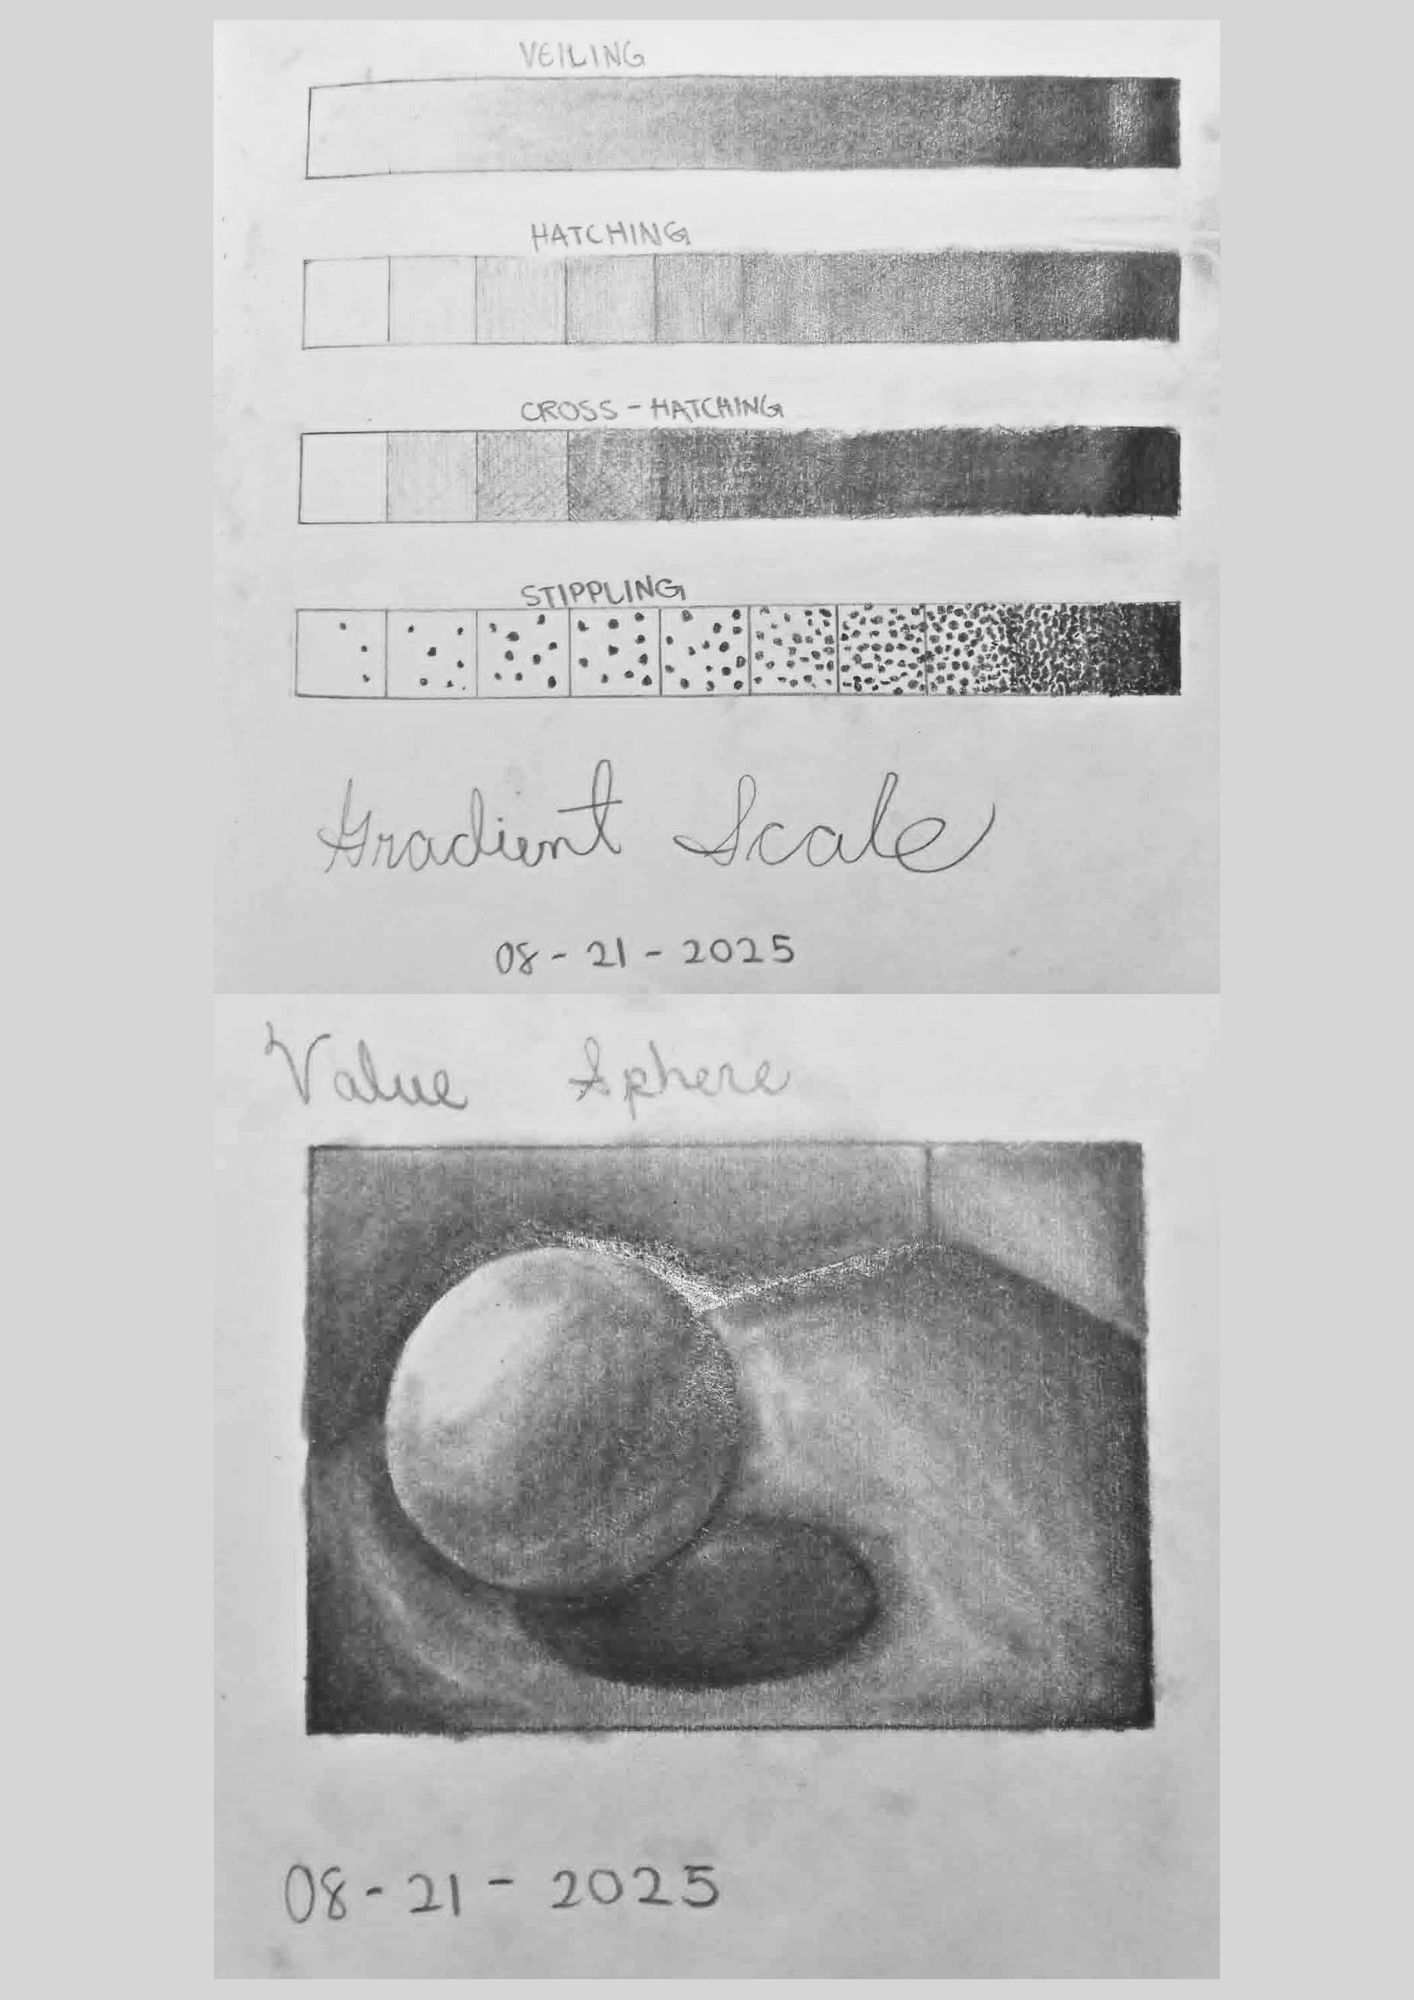 VEILING
HATCHING
CROSS-HATCHING
STIPPLING
Gradient Scale
08-21-2025
Value Sphere
08-21-2025